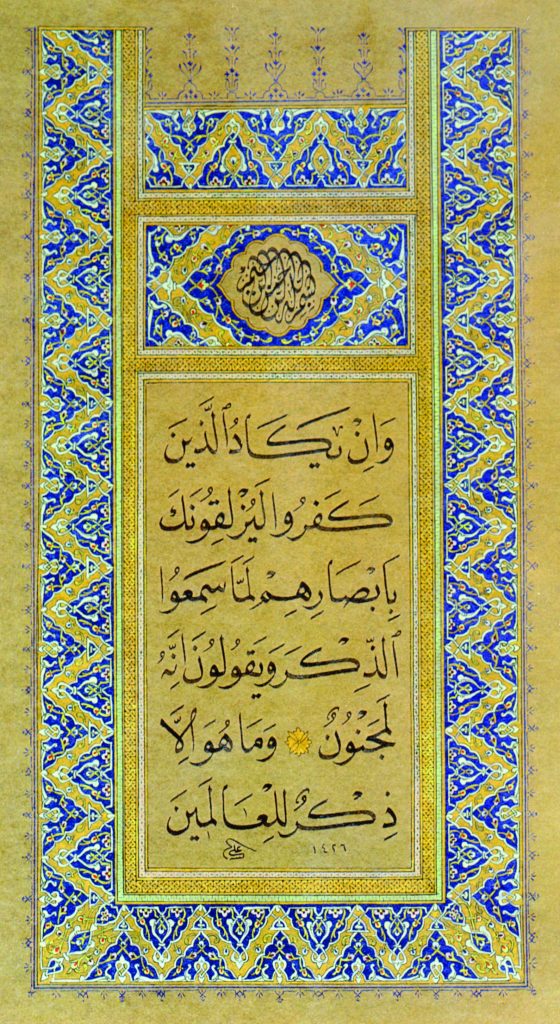 بسم الله الرحمن الرحيم
وَاِنْ يَكَادُ ٱلَّذٖينَ
كَفَرُوا لَيُزْلِقُونَكَ
بِاَبْصَارِهِمْ لَمَّا سَمِعُوا
ٱلذِّكْرَ وَيَقُولُونَ اِنَّهُ
لَمَجْنُونٌ وَمَا هُوَ اِلَّا
ذِكْرٌ لِلْعَالَمٖينَ
١٤٢٦